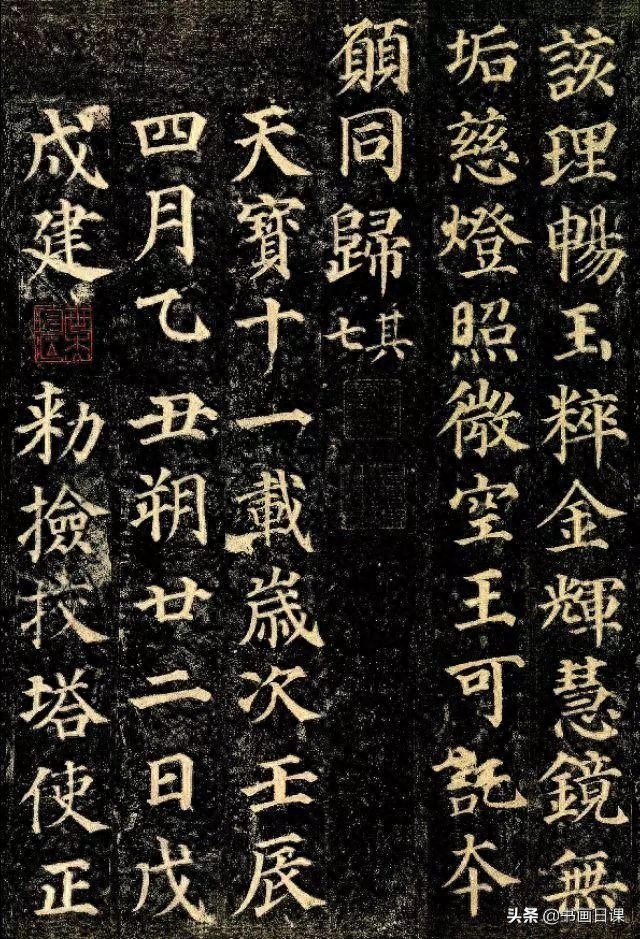 該理暢玉粹金輝慧鏡無
垢慈燈照微空王可託本
願同歸其七
天寶十一載歲次壬辰
四月乙丑朔廿二日戊
戌建
勑檢校塔使正
头条 @书画日课